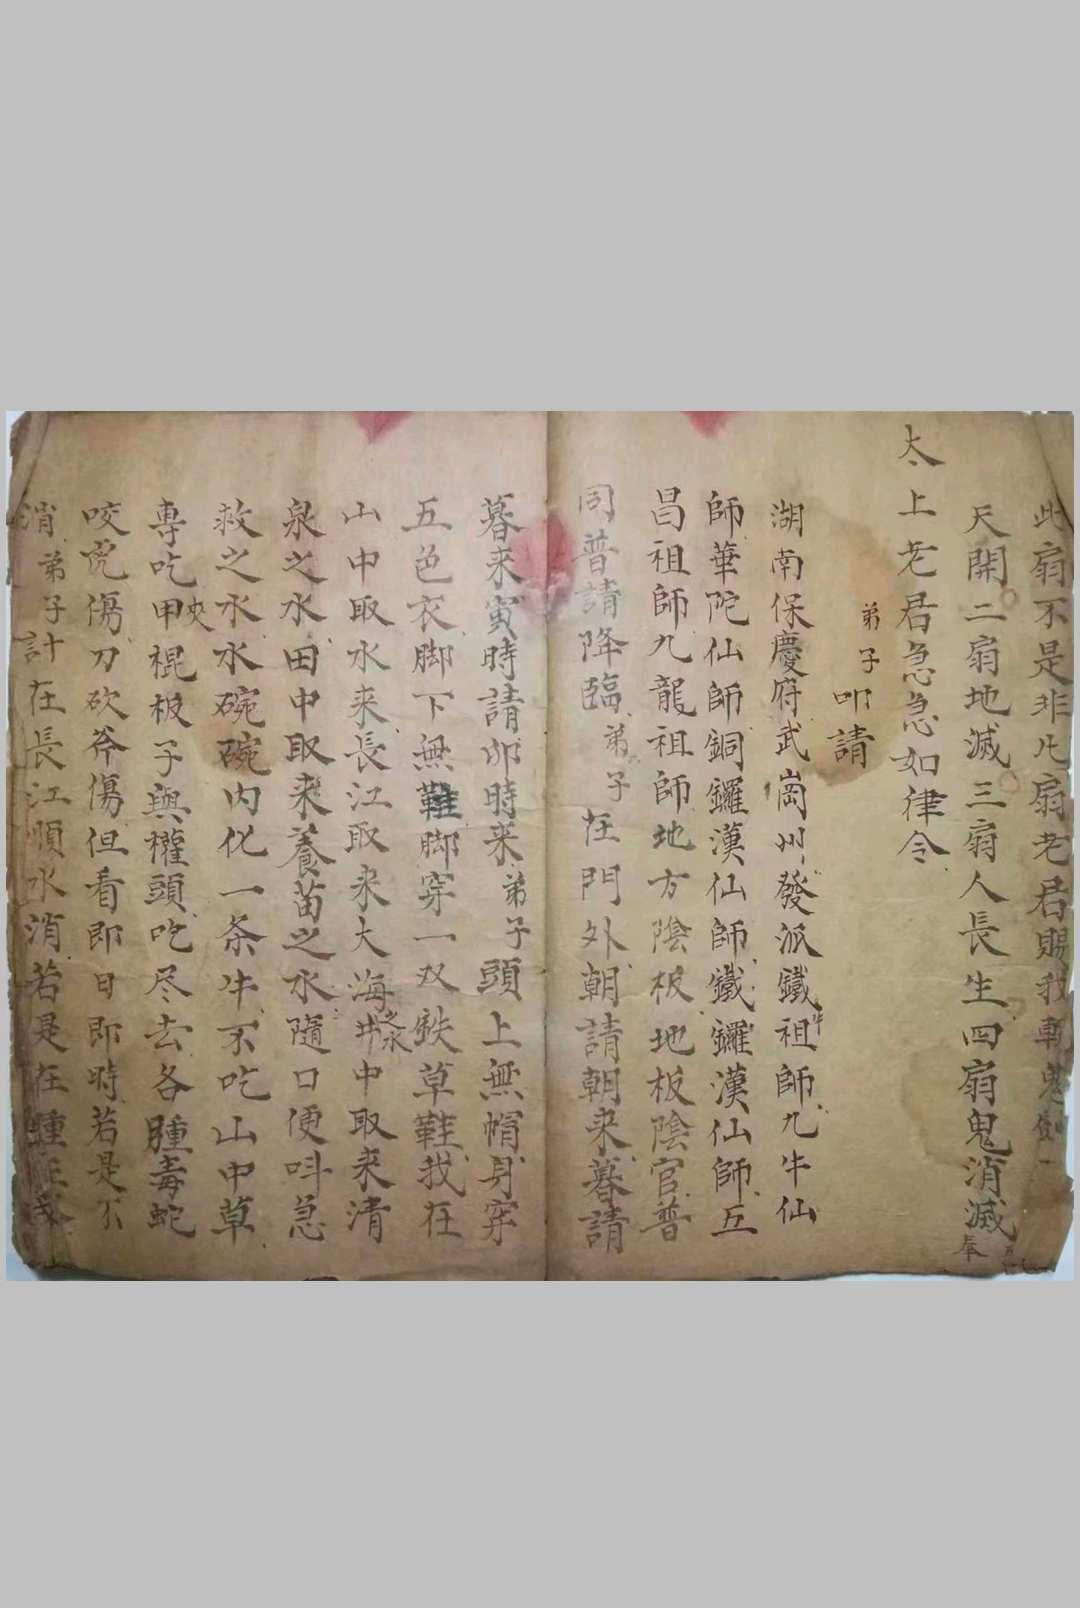 此扇不是非凡扇老君賜我斬鬼劍一
天開二扇地滅三扇人長生四扇鬼消滅奉
太上老君急急如律令
弟子叩請
湖南保慶府武崗州發派鐵牛祖師九牛仙
師華陀仙師銅鑼漢仙師鐵鑼漢仙師五
昌祖師九龍祖師地方陰板地板陰官普
同普請降臨弟子在門外朝請朝来暮請
暮来寅時請卯時来弟子頭上無帽身穿
五色衣脚下無鞋脚穿一双鉄草鞋我在
山中取水来長江取来大海之水井中取来清
泉之水田中取来養苗之水隨口便呌急
救之水水碗碗内化一条牛不吃山中草
專吃甲虫棍板子與權頭吃尽去各腫毒蛇
咬虎傷刀砍斧傷但看即日即時若是不
消弟子計在長江順水消若是在腫